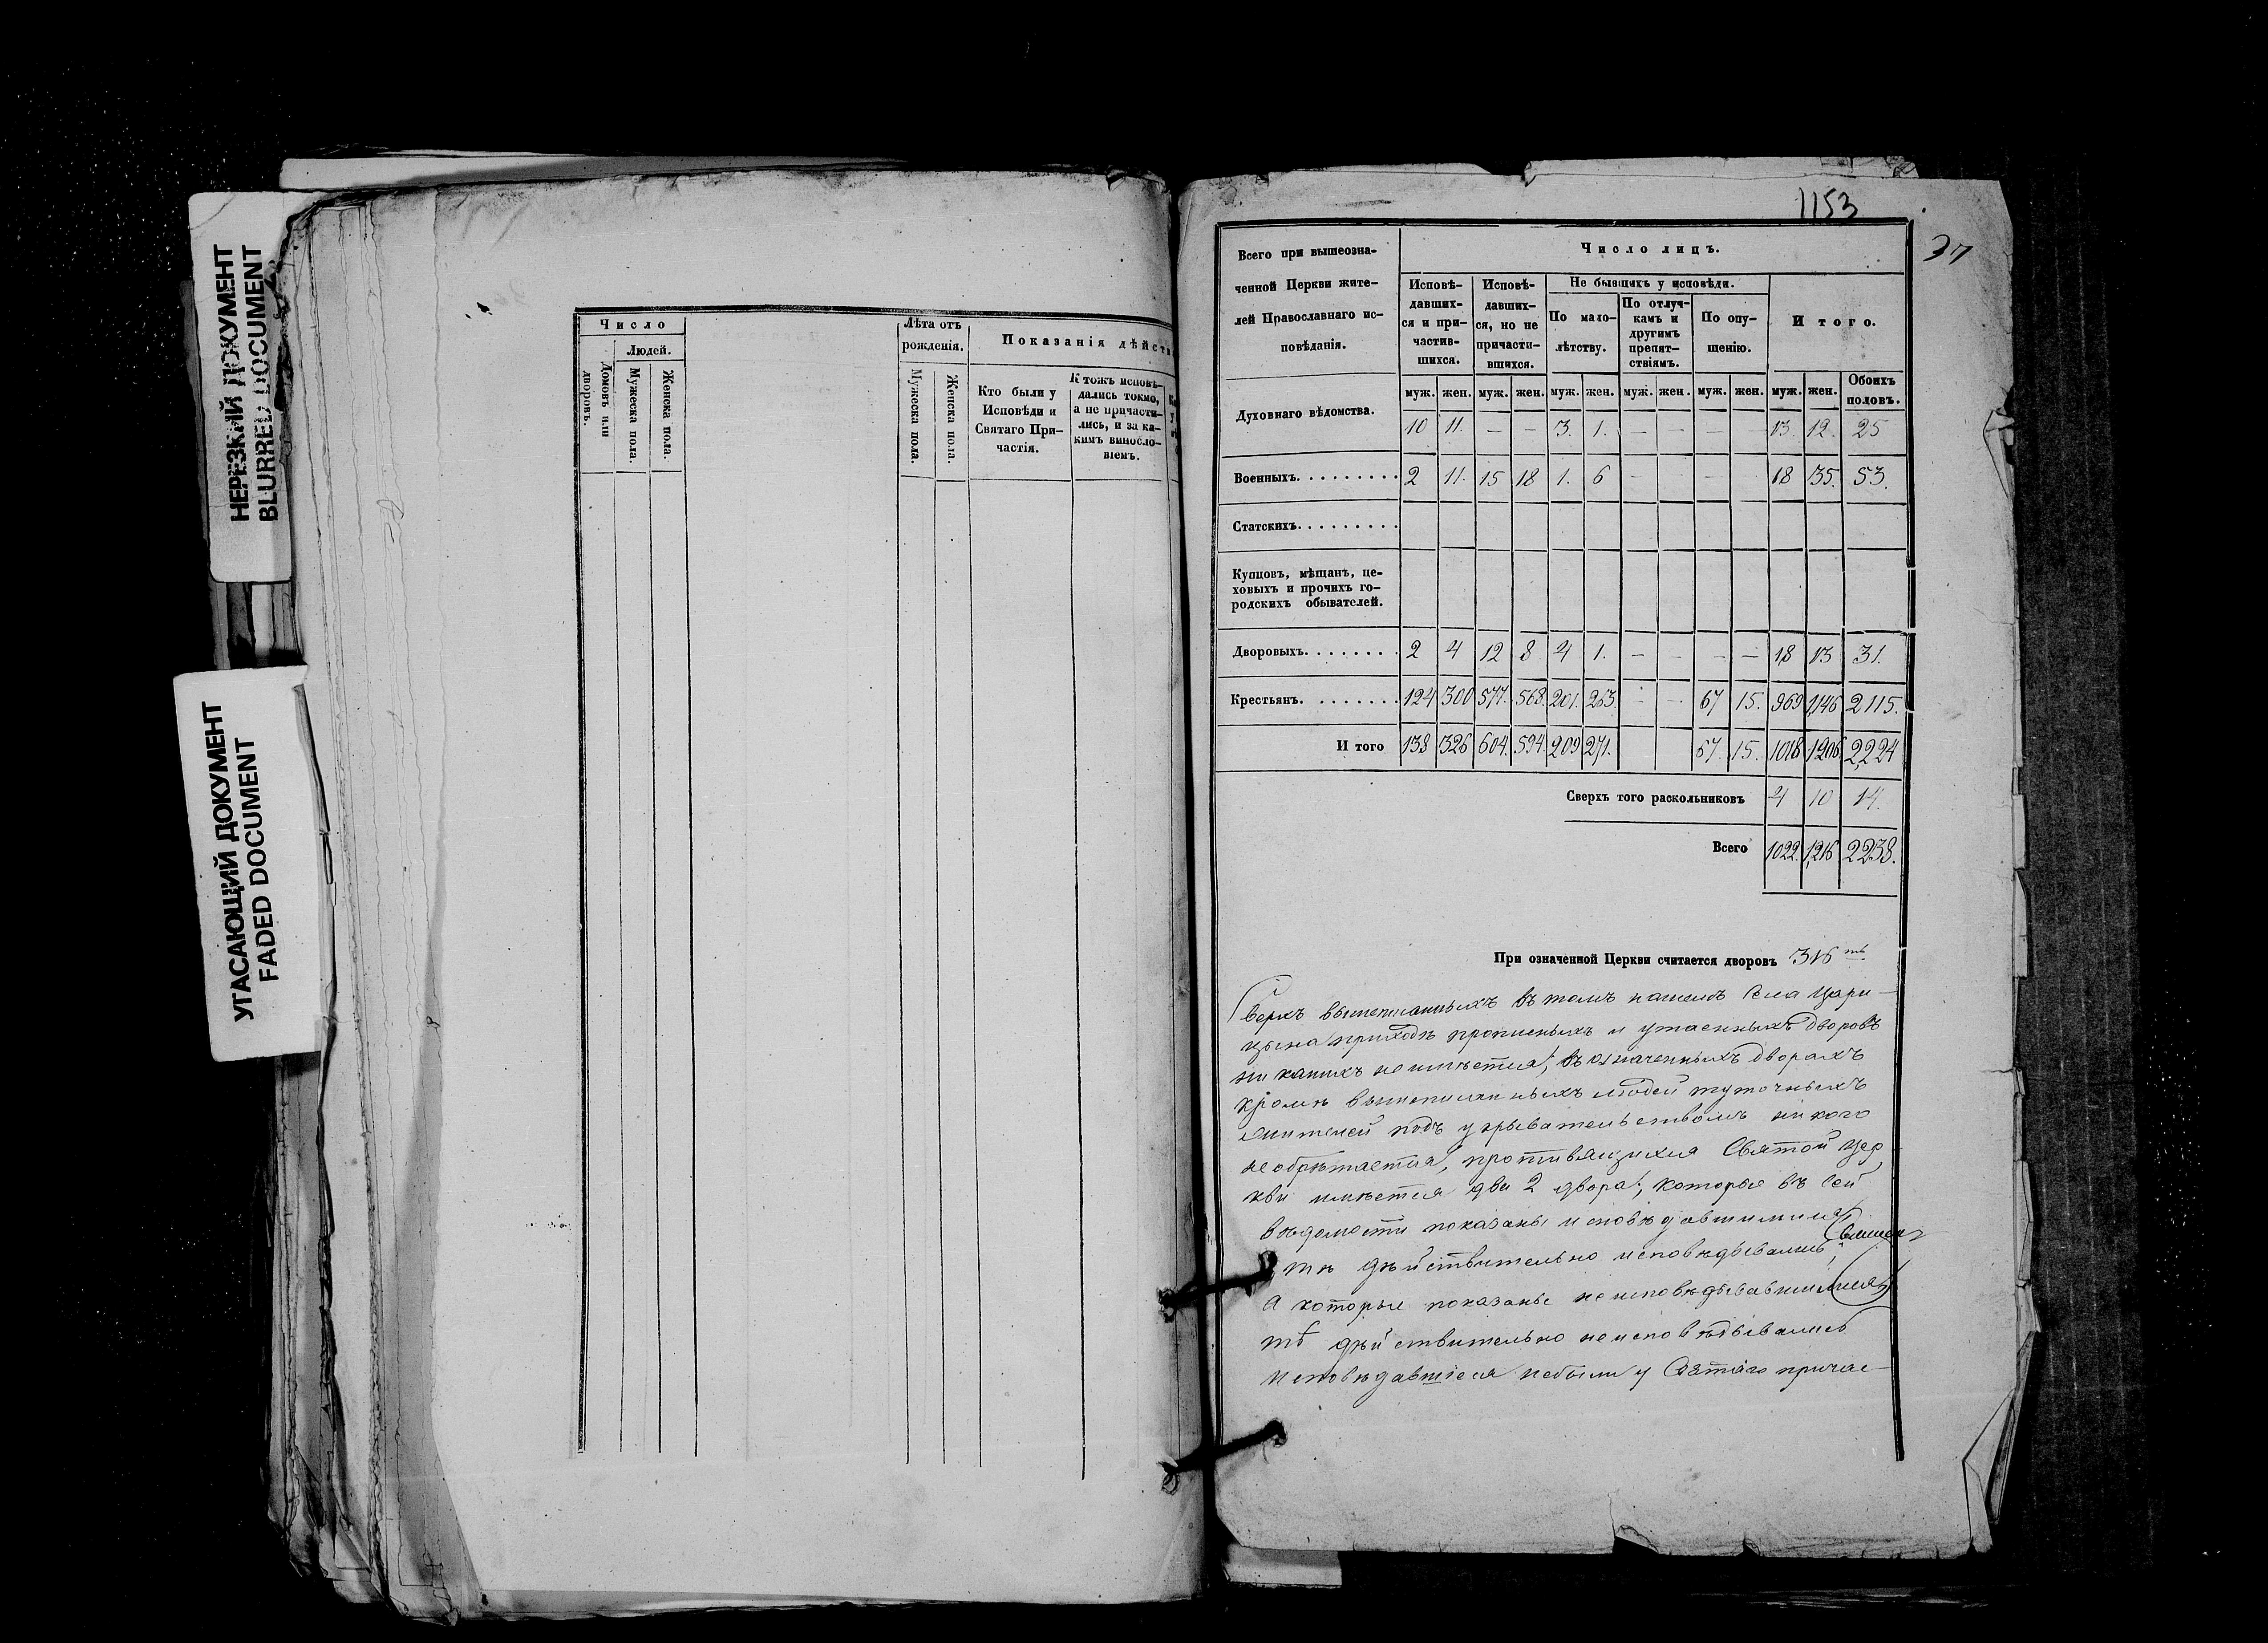 НЕРЕЗКИЙ ДОКУМЕНТ
BLURRED DOCUMENT
УГАСАЮЩИЙ ДОКУМЕНТ
FADED DOCUMENT
Число
Людей.
Домовъ или дворовъ.
Мужеска пола.
Женска пола.
Лѣта отъ рожденія.
Мужеска пола.
Женска пола.
Показанія дѣйст
Кто были у
Исповѣди и
Святаго При-
частія.
Ктожъ исповѣ-
дались токмо,
а не причасти-
лись, и за ка-
кимъ винословіемъ.
1153
37
Всего при вышеозна-
ченной Церкви жите-
лей Православнаго ис-
повѣданія.
Число лицъ.
Исповѣ-
давших-
ся и при-
частив-
шихся.
Исповѣ-
давших-
ся, но не
причасти-
вшихся.
Не бывшихъ у исповѣди.
По мало-
лѣтству.
По отлуч-
камъ и
другимъ
препят-
ствіямъ.
По опу-
щенію.
Итого.
муж. жен. муж. жен. муж. жен. муж. жен. муж. жен. муж. жен. Обоихъ половъ.
Духовнаго вѣдомства. 10 11. — — 3. 1. — — — — 13. 12. 25
Военныхъ. 2 11. 15 18 1. 6 — — — — 18 35. 53.
Статскихъ.
Купцовъ, мѣщанъ, це-
ховыхъ и прочихъ го-
родскихъ обывателей.
Дворовыхъ. 2 4 12 8 4 1. — — — — 18 13 31.
Крестьянъ. 124 300 577. 568. 201. 263. — — 67 15. 969 1,146 2115.
И того 138 326 604. 594. 209 271. 67. 15. 1018 1206 2,224
Сверхъ того раскольниковъ 4 10 14.
Всего 1022. 1,216 2238.
При означенной Церкви считается дворовъ 316 ть
Сверхъ вышеписанныхъ въ томъ нашемъ Села Цари-
цына приходѣ прописныхъ и утаенныхъ дворовъ
ни какихъ не имѣется, въ означенныхъ дворахъ
кромѣ вышеписанныхъ людей туточныхъ
жителей подъ укрывательствомъ ни кого
не обрѣтается, противящихся Святой Цер
кви имѣется два 2 двора, которые въ сей
вѣдомости показаны исповѣдавшимися
тѣ дѣйствительно исповѣдывались,
А которые показаны не исповѣдывавшимися
тѣ дѣйствительно не исповѣдывались
исповѣдавшіеся небыли у Святаго причас-